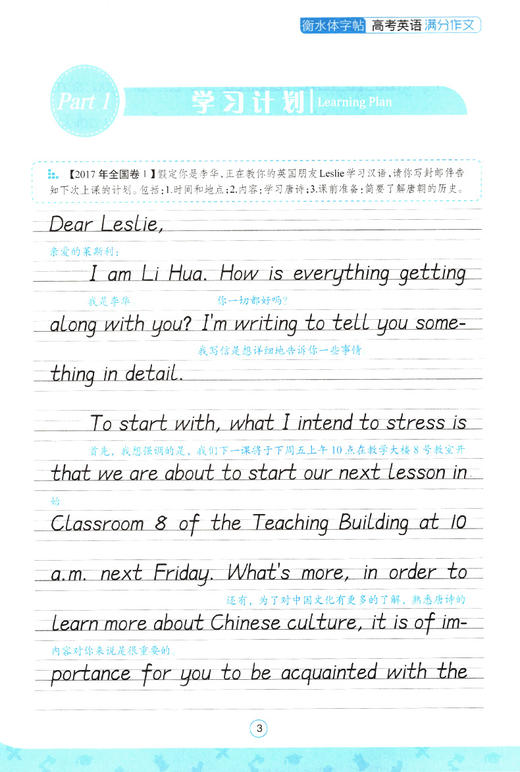 衡水体字帖 高考英语 满分作文
Part 1
学习计划 Learning Plan
【2017年全国卷Ⅰ】假定你是李华,正在教你的英国朋友Leslie学习汉语,请你写封邮件告
知如下次上课的计划。包括:1.时间和地点;2.内容:学习唐诗;3.课前准备:简要了解唐朝的历史。
Dear Leslie,
亲爱的莱斯利:
I am Li Hua. How is everything getting
我是李华 你一切都好吗?
along with you? I'm writing to tell you some-
我写信是想详细地告诉你一些事情
thing in detail.
To start with, what I intend to stress is
首先,我想强调的是,我们下一课将于下周五上午10点在教学大楼8号教室开
that we are about to start our next lesson in
始
Classroom 8 of the Teaching Building at 10
a.m. next Friday. What's more, in order to
还有,为了对中国文化有更多的了解,熟悉唐诗的
learn more about Chinese culture, it is of im-
内容对你来说是很重要的
portance for you to be acquainted with the
3